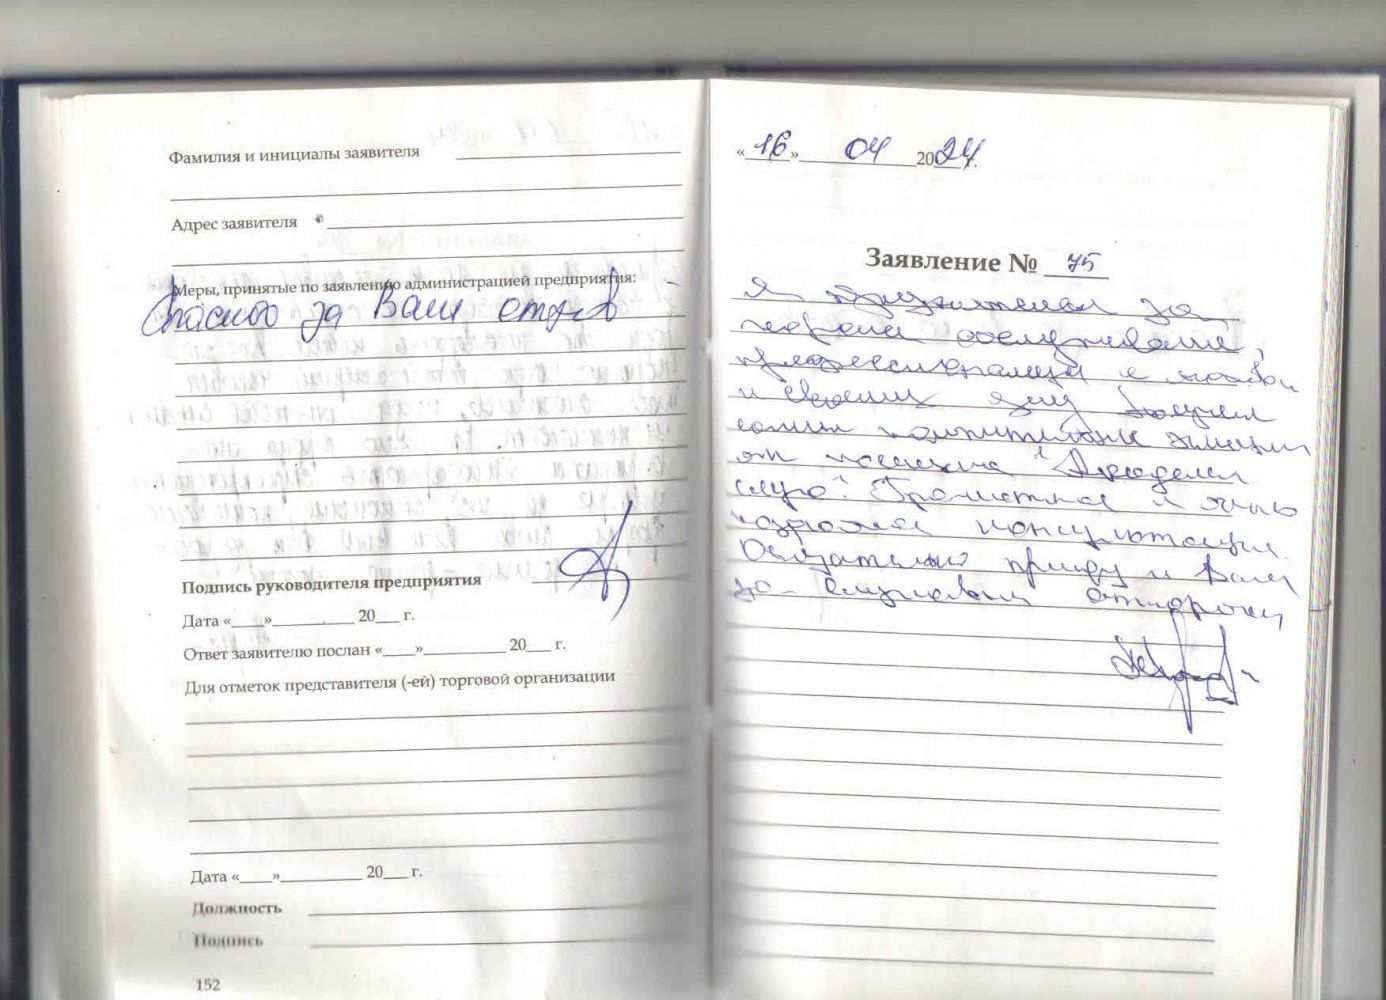 Фамилия и инициалы заявителя
Адрес заявителя
Меры, принятые по заявлению администрацией предприятия:
Спасибо за Ваш отзыв
Подпись руководителя предприятия
Дата «____»__________ 20___ г.
Ответ заявителю послан «____»__________ 20___ г.
Для отметок представителя (-ей) торговой организации
Дата «____»__________ 20___ г.
Должность
Подпись
152
«16» 04 2024 г.
Заявление № 75
Я признательна за
хорошее обслуживание,
с любовью
и своему делу Получил
самые положительные эмоции
от посещения "Академия
слуха". Грамотная и очень
подробная консультация.
Обязательно приду к Вам
за слуховым аппаратом